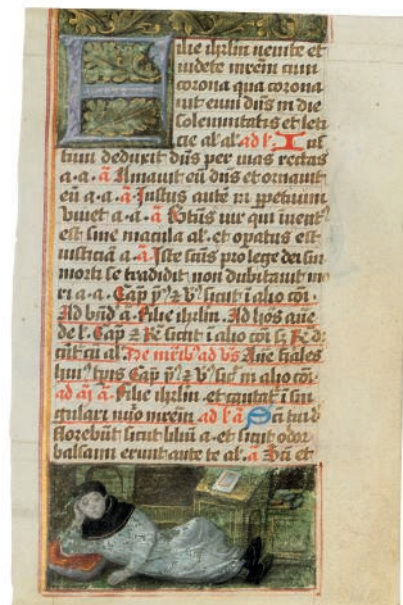 Filie ihrlm uenite et
uidete mrem cum
corona qua corona
uit eum dns in die
solemnitatis et leti
cie al' al' ad k'. Ius
tum deduxit dns per uias rectas
a. a. a Amauit eu dns et ornauit
eu a. a. a Iustus aute in ppetuum
viuet a. a. a uir qui inuent'
est sine macula al'. et opatus est
iusticia a. a Iste scus pro lege dei sui
morti se tradidit non dubitauit mo
ri a. a. Cap sicut i alio coi.
Ad a. Filie ihrlm. Ad hos
de k. Cap sicut i alio coi
al. De mrib' ad vs
Cap sic' in alio coi
a. Filie ihrlm. et i sin
gulari mrem ad k' a Sci tui d
florebut sicut liliu a. et sicut odor
balsami erunt ante te al'. a et